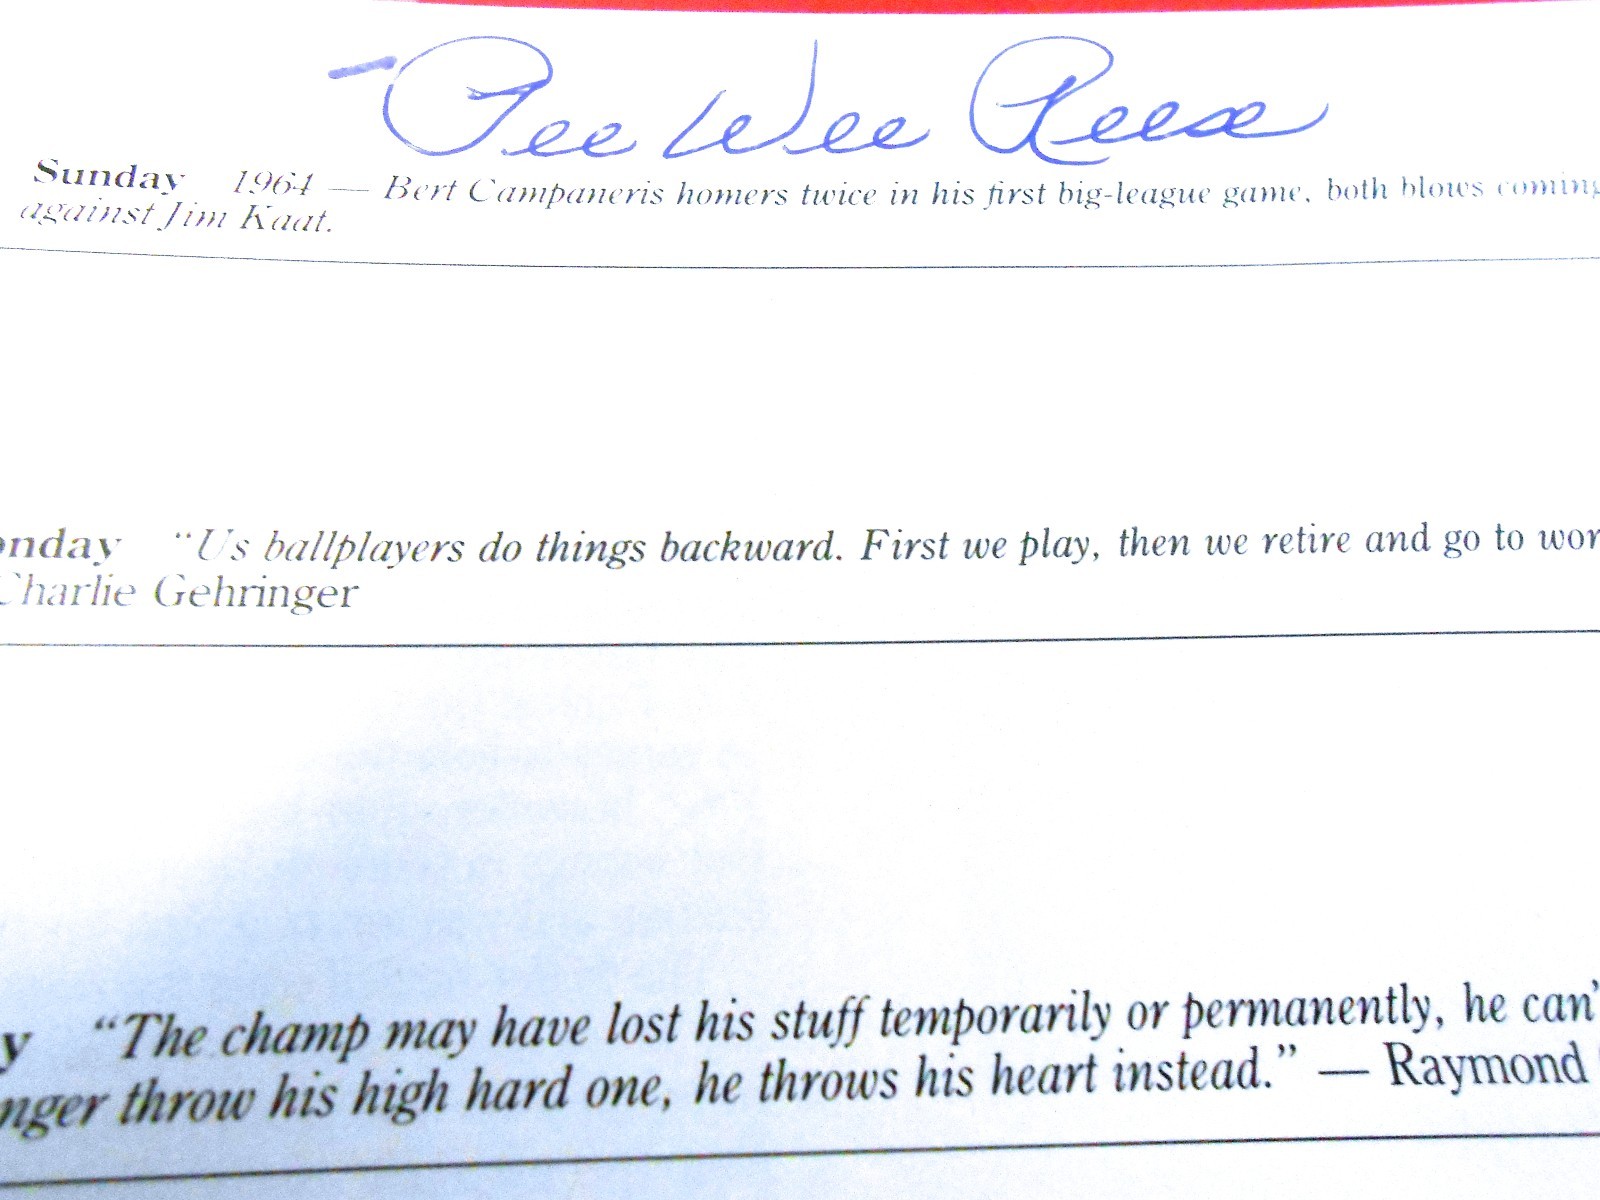 Pee Wee Reese
Sunday 1964 — Bert Campaneris homers twice in his first big-league game, both blows coming
against Jim Kaat.
onday “Us ballplayers do things backward. First we play, then we retire and go to wor
Charlie Gehringer
y “The champ may have lost his stuff temporarily or permanently, he can’
nger throw his high hard one, he throws his heart instead.” — Raymond